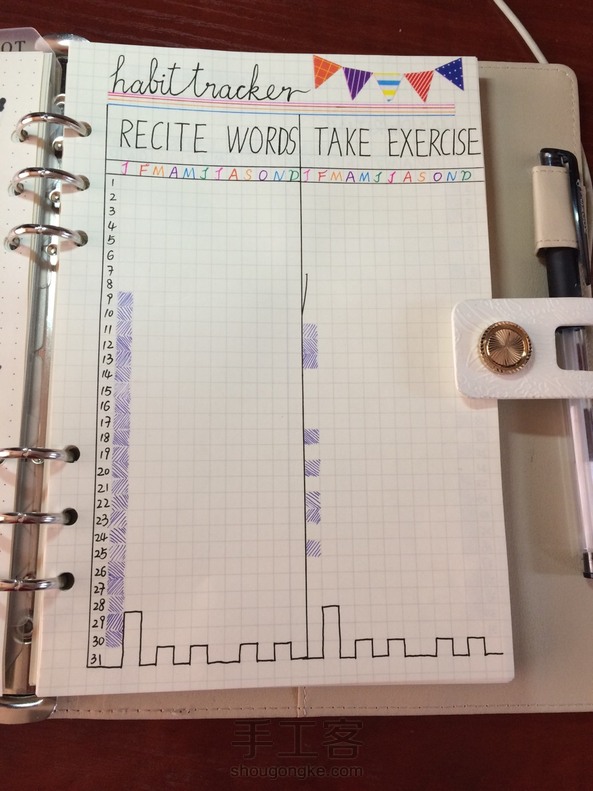 OT
habit tracker
RECITE WORDS TAKE EXERCISE
J F M A M J J A S O N D J F M A M J J A S O N D
1
2
3
4
5
6
7
8
9
10
11
12
13
14
15
16
17
18
19
20
21
22
23
24
25
26
27
28
29
30
31
手工客
shougongke.com